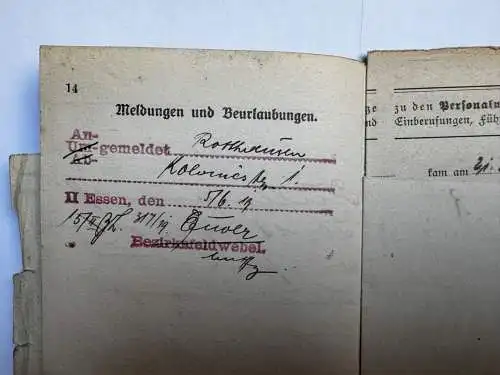 14
Meldungen und Beurlaubungen.
An-
Um-gemeldet Rotthausen
Ab-
Kolonie str. 1.
II Essen, den 5/6. 19
Bezirksfeldwebel.
ze zu den Personaln
nd Einberufungen, Füh
kam am